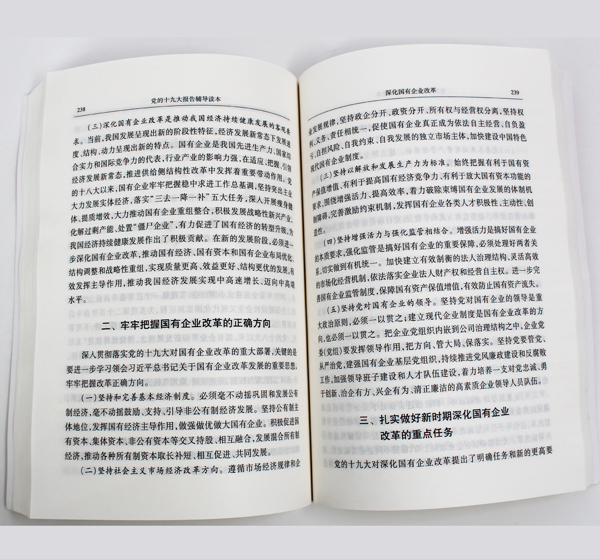 238
党的十九大报告辅导读本
（三）深化国有企业改革是推动我国经济持续健康发展的客观要
求。当前，我国发展呈现出新的阶段性特征，经济发展新常态下发展速
度、结构、动力呈现出新的特点。国有企业是我国先进生产力、国家综
合实力和国际竞争力的代表，行业产业的影响力强，在适应、把握、引领
经济发展新常态、推进供给侧结构性改革中发挥着重要带动作用。党
的十八大以来，国有企业牢牢把握稳中求进工作总基调，坚持突出主业
大力发展实体经济，落实“三去一降一补”五大任务，深入开展瘦身健
体、提质增效，大力推动国有企业重组整合，积极发展战略性新兴产业，
化解过剩产能、处置“僵尸企业”，有力促进了国有经济的转型升级，为
我国经济持续健康发展作出了积极贡献。在新的发展阶段，必须进一
步深化国有企业改革，推动国有经济、国有资本和国有企业布局优化、
结构调整和战略性重组，实现质量更高、效益更好、结构更优的发展，有
效发挥主导作用，推动我国经济发展实现中高速增长、迈向中高端
水平。
二、牢牢把握国有企业改革的正确方向
深入贯彻落实党的十九大对国有企业改革的重大部署，关键的是
要进一步学习领会习近平总书记关于国有企业改革发展的重要思想，
牢牢把握改革正确方向。
（一）坚持和完善基本经济制度。必须毫不动摇巩固和发展公有
制经济，毫不动摇鼓励、支持、引导非公有制经济发展。坚持公有制主
体地位，发挥国有经济主导作用，做强做优做大国有企业。积极促进国
有资本、集体资本、非公有资本等交叉持股、相互融合，发展混合所有制
经济，推动各种所有制资本取长补短、相互促进、共同发展。
（二）坚持社会主义市场经济改革方向。遵循市场经济规律和企
深化国有企业改革
239
业发展规律，坚持政企分开、政资分开、所有权与经营权分离，坚持权
利、义务、责任相统一，促使国有企业真正成为依法自主经营、自负盈
亏、自担风险、自我约束、自我发展的独立市场主体，加快建设中国特色
现代国有企业制度。
（三）坚持以解放和发展生产力为标准。始终把握有利于国有资
产保值增值、有利于提高国有经济竞争力、有利于放大国有资本功能的
要求，围绕增强活力、提高效率，着力破除束缚国有企业发展的体制机
制障碍，完善激励约束机制，发挥国有企业各类人才积极性、主动性、创
造性。
（四）坚持增强活力与强化监管相结合。增强活力是搞好国有企业
的本质要求，强化监管是搞好国有企业的重要保障，必须处理好两者关
系，切实做到有机统一。加快建立有效制衡的法人治理结构、灵活高效
的市场化经营机制，依法落实企业法人财产权和经营自主权。进一步完
善国有企业监管制度，保障国有资产保值增值，有效防止国有资产流失。
（五）坚持党对国有企业的领导。坚持党对国有企业的领导是重
大政治原则，必须一以贯之；建立现代企业制度是国有企业改革的方
向，也必须一以贯之。把企业党组织内嵌到公司治理结构之中，企业党
委（党组）要发挥领导作用，把方向、管大局、保落实。坚持党要管党、
从严治党，建强国有企业基层党组织，持续推进党风廉政建设和反腐败
工作，加强领导班子建设和人才队伍建设，着力培养一支对党忠诚、勇
于创新、治企有方、兴企有为、清正廉洁的高素质企业领导人员队伍。
三、扎实做好新时期深化国有企业
改革的重点任务
党的十九大对深化国有企业改革提出了明确任务和新的更高要